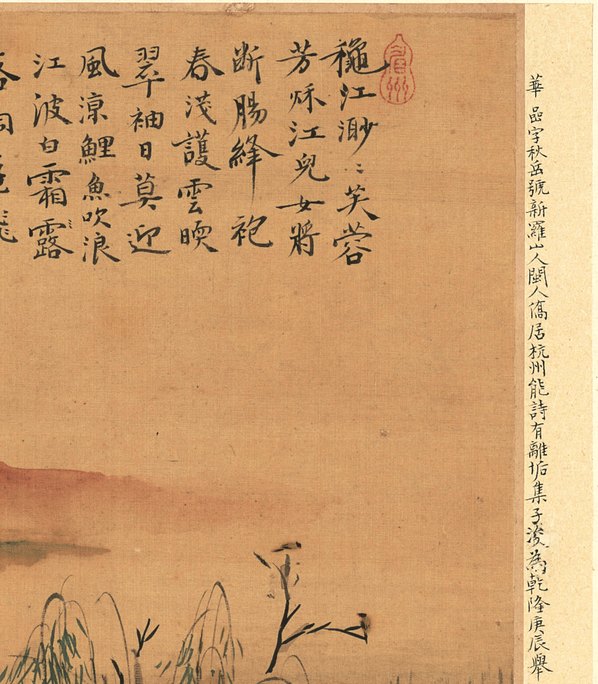 華喦字秋岳號新羅山人閩人僑居杭州能詩有離垢集子浚為乾隆庚辰舉
穐江渺〻芙蓉
芳秌江兒女將
断腸絳袍
春淺護雲暖
翠袖日莫迎
風凉鯉魚吹浪
江波白霜露